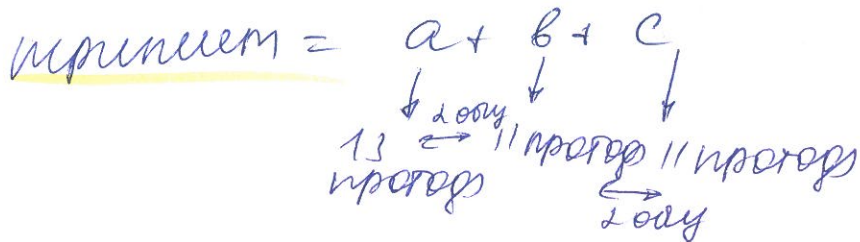 триплет = a + b + c
2 общ
13 протоф 11 протоф 11 протоф
2 общ